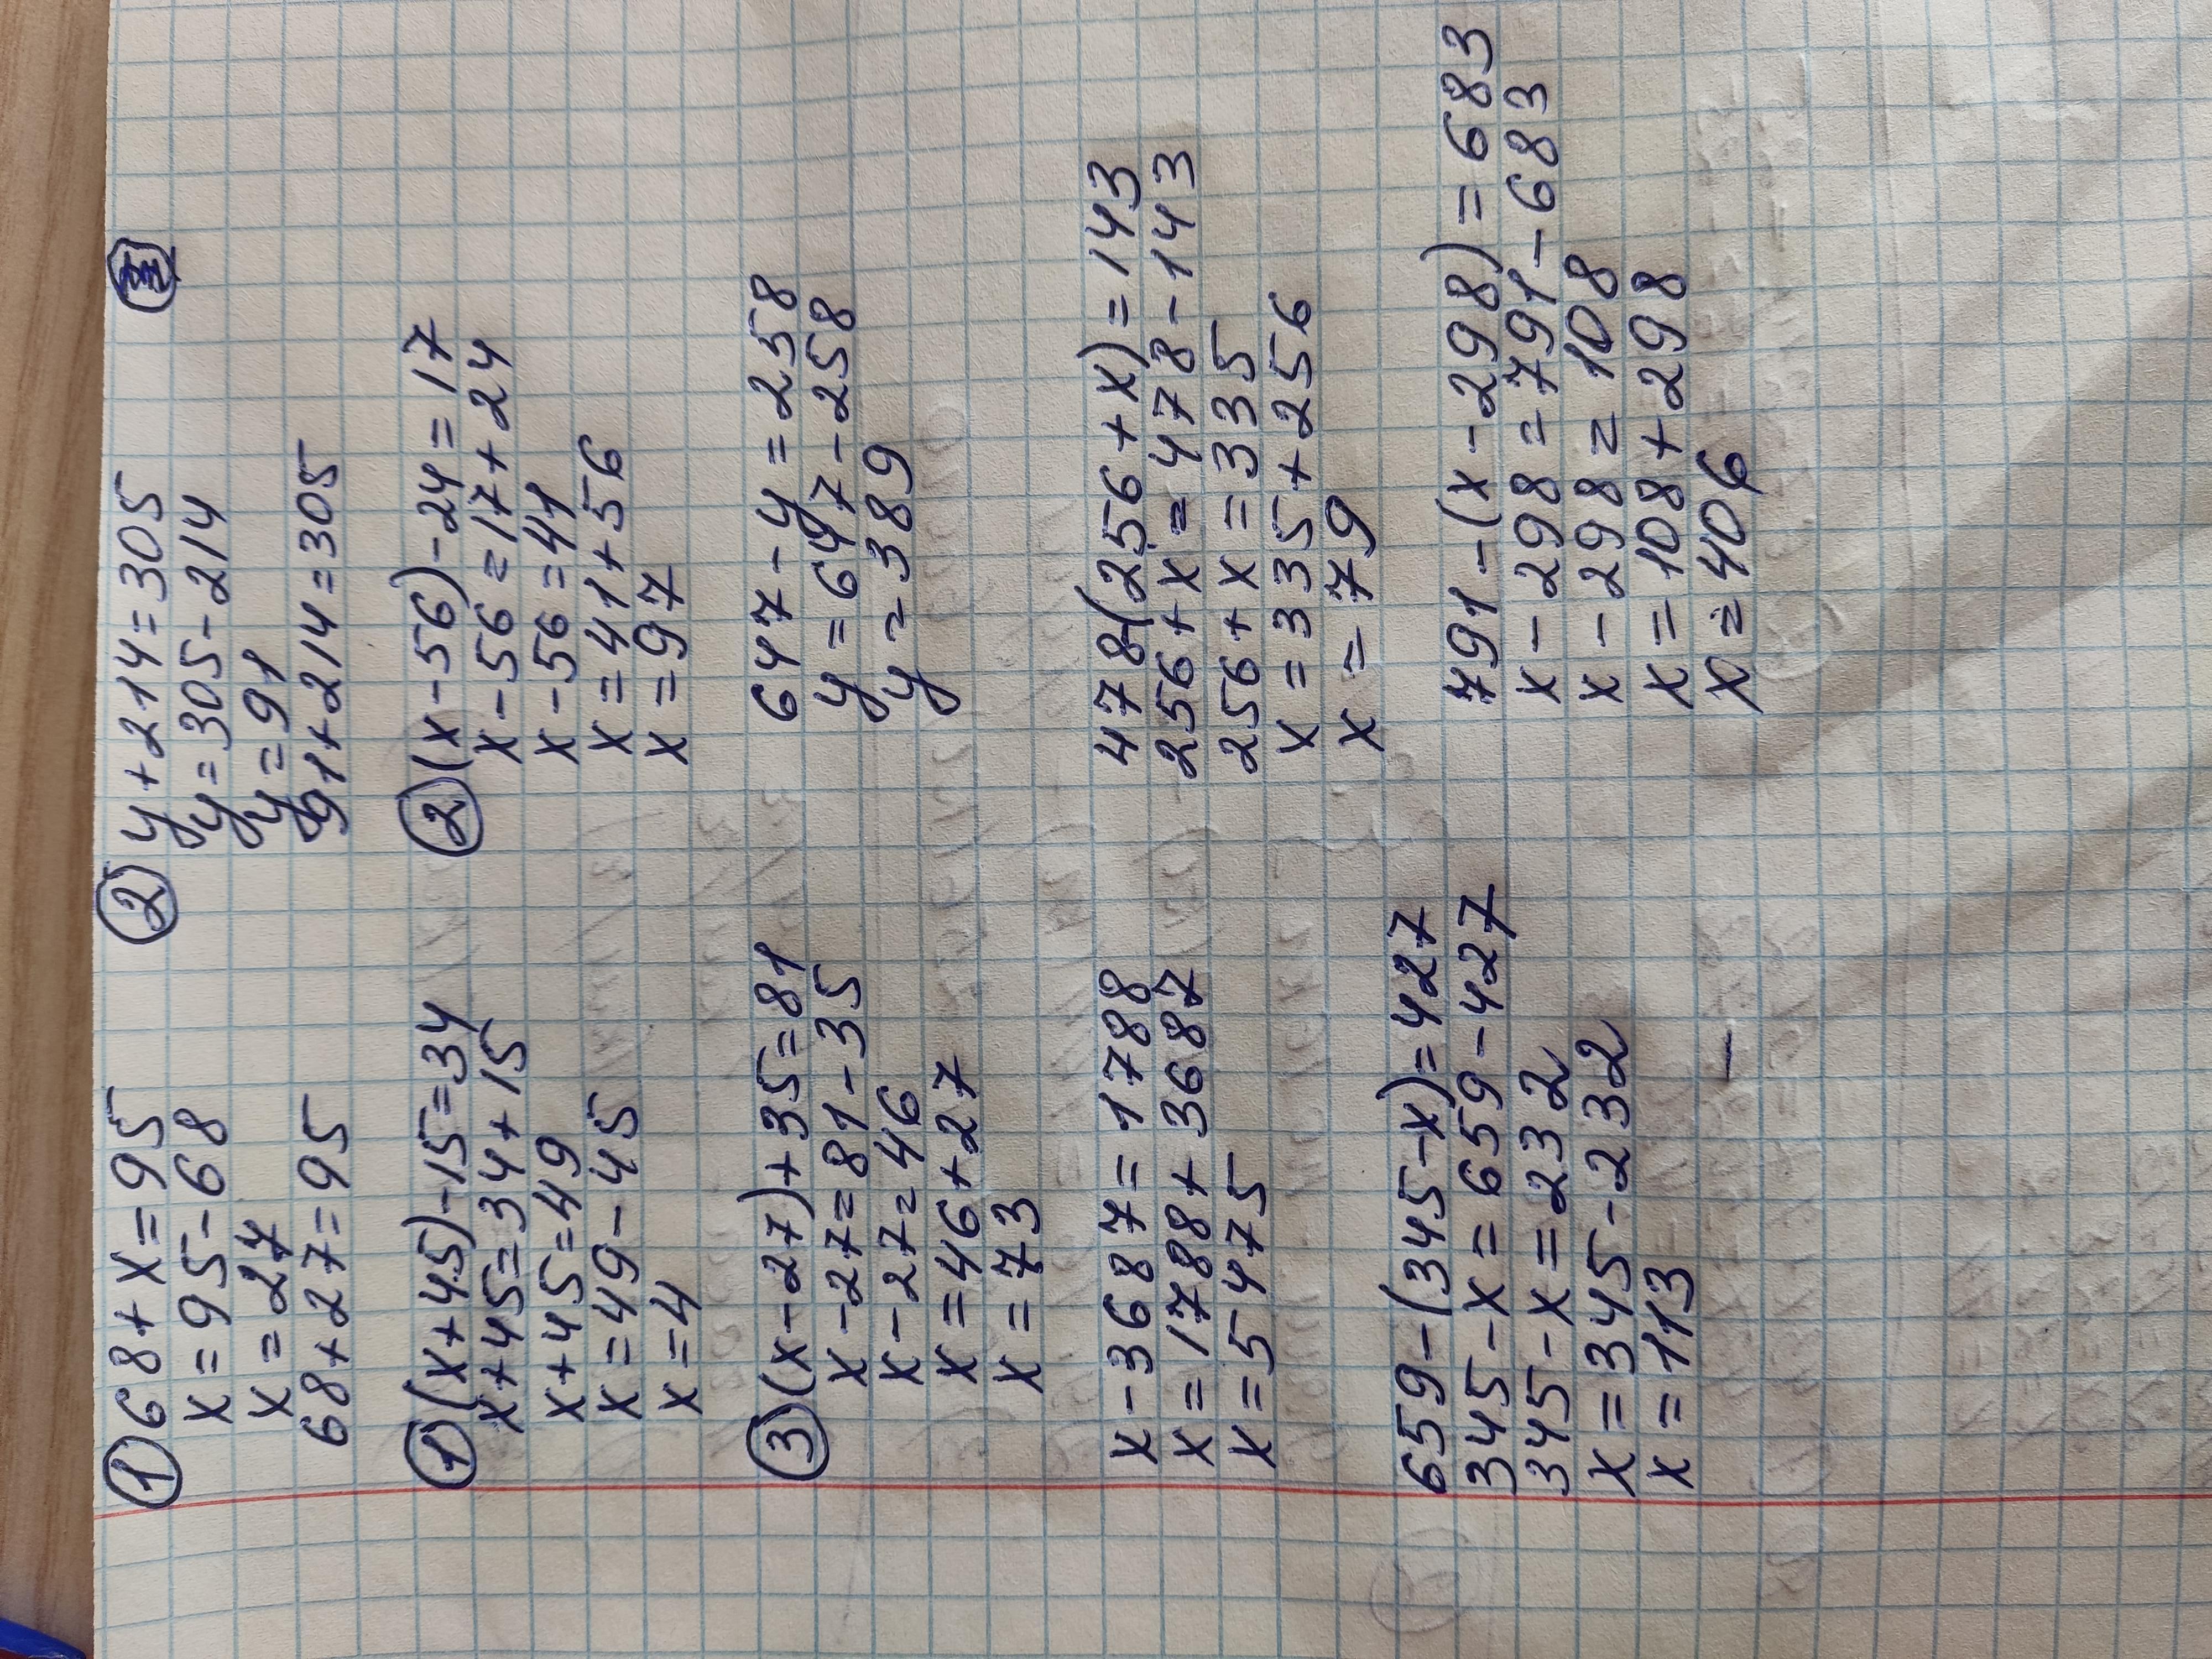 ① 68+x=95
x=95-68
x=27
68+27=95
② y+214=305
y=305-214
y=91
91+214=305
① (x+45)-15=34
x+45=34+15
x+45=49
x=49-45
x=4
② (x-56)-24=17
x-56=17+24
x-56=41
x=41+56
x=97
③ (x-27)+35=81
x-27=81-35
x-27=46
x=46+27
x=73
647-y=258
y=647-258
y=389
x-3687=1788
x=1788+3687
x=5475
478-(256+x)=143
256+x=478-143
256+x=335
x=335+256
x=79
659-(345-x)=427
345-x=659-427
345-x=232
x=345-232
x=113
791-(x-298)=683
x-298=791-683
x-298=108
x=108+298
x=406